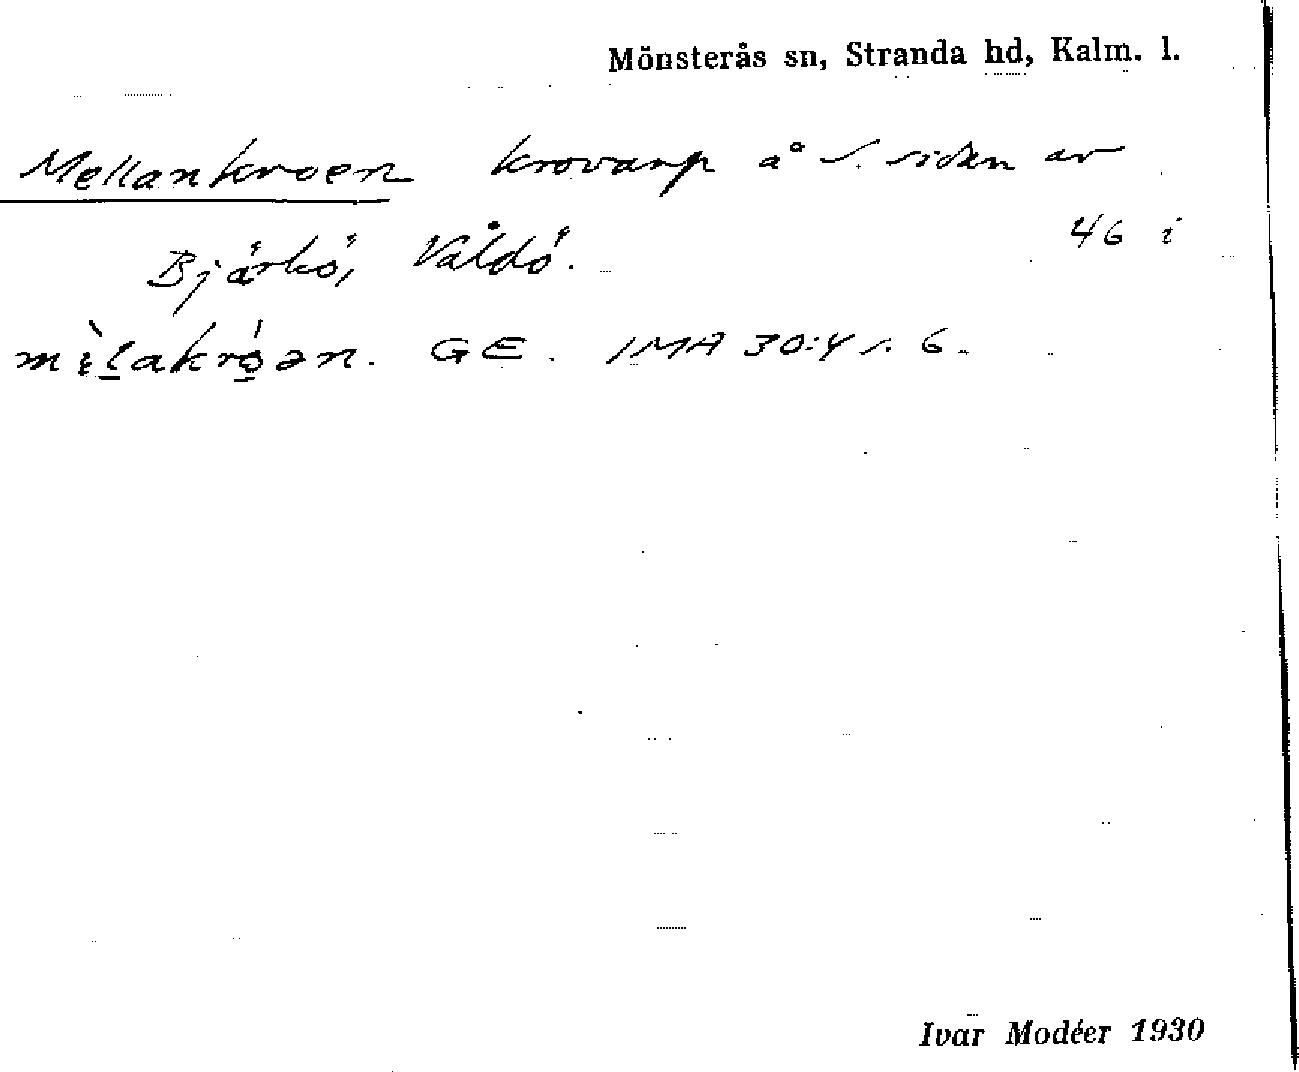 Mönsterås sn, Stranda hd, Kalm. l.
Mellankroen krovarp å S. sidan av
Björkö, Vållö.
46 i
GE. IMA 30:4 s. 6.
Ivar Modéer 1930